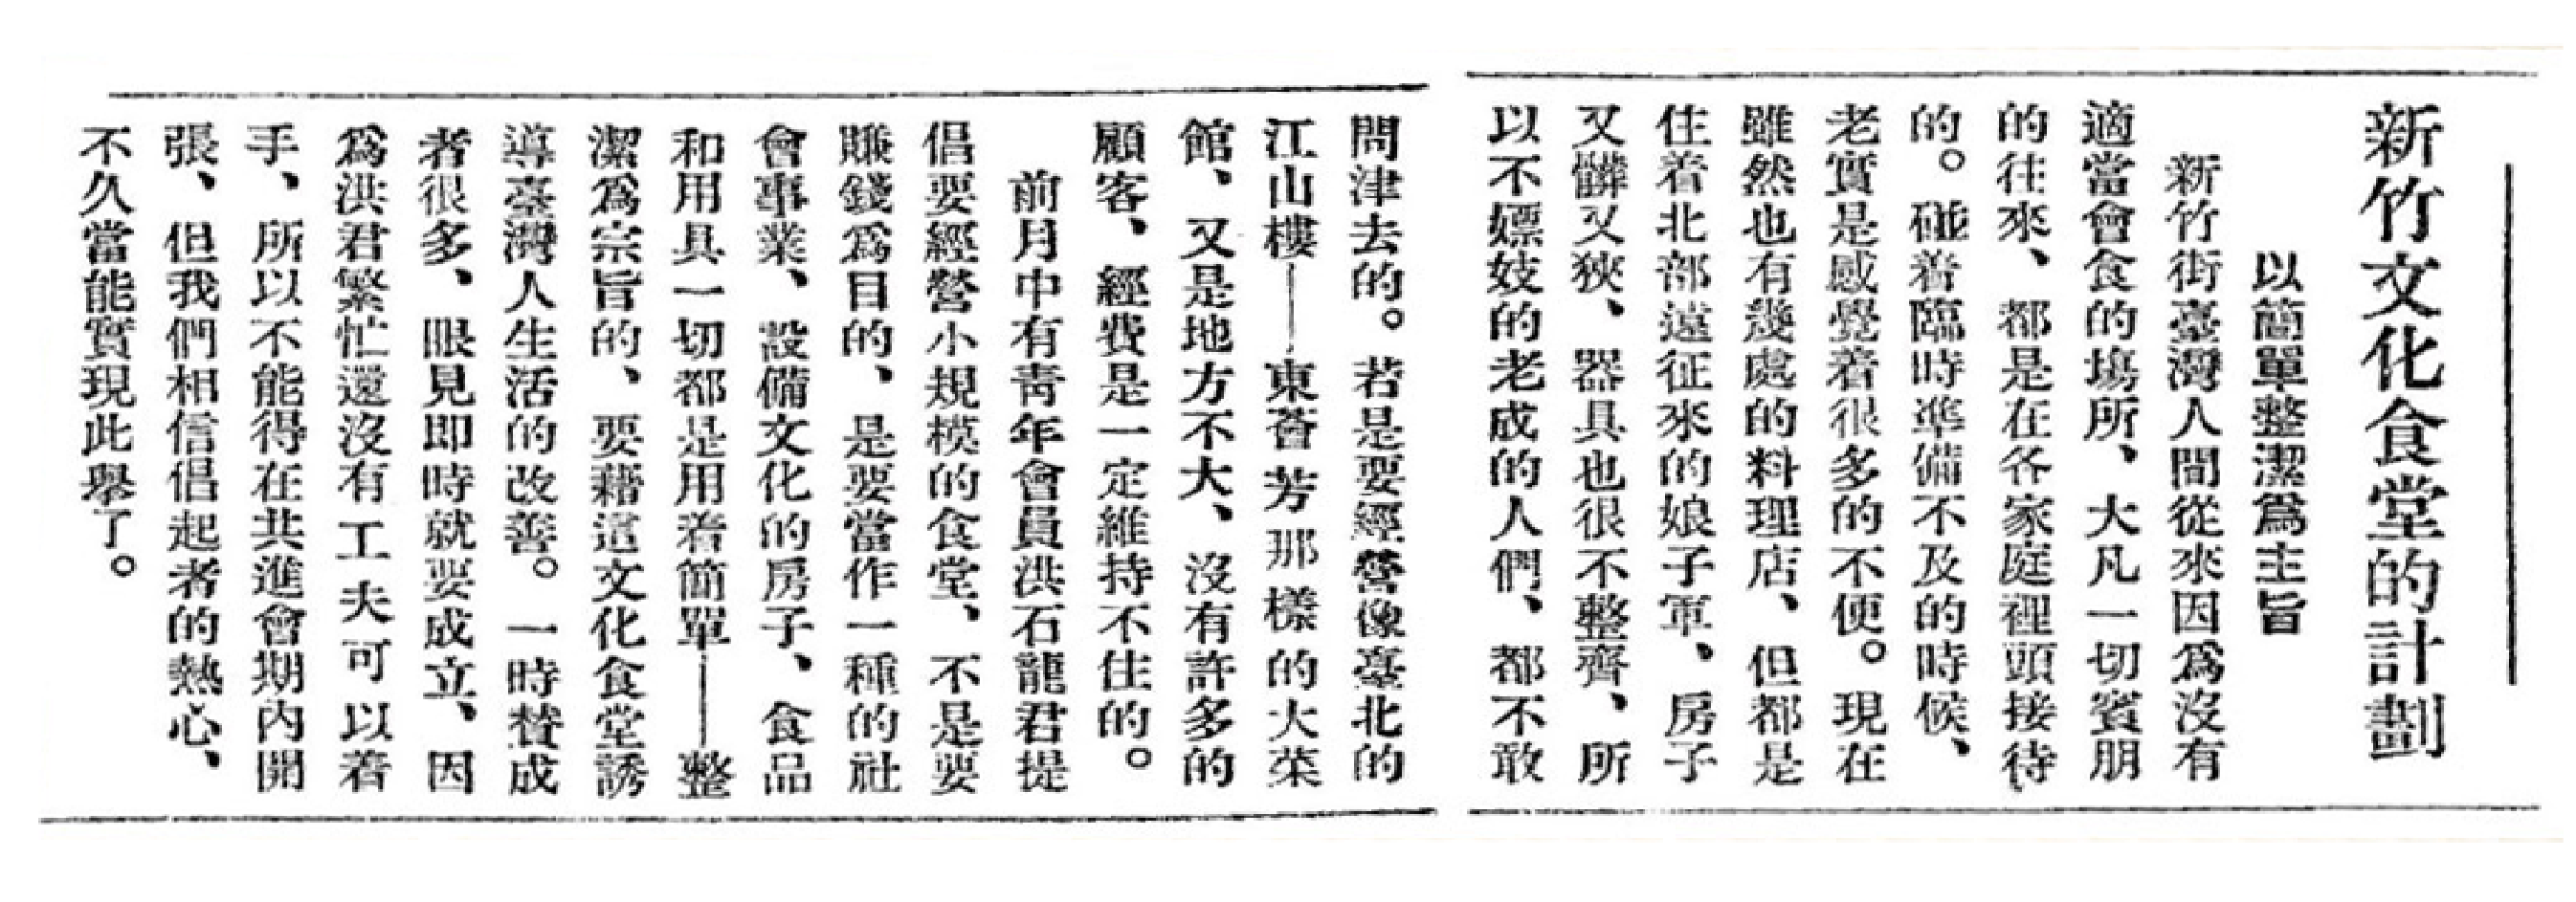 新竹文化食堂的計劃
以簡單整潔爲主旨
新竹街臺灣人間從來因爲沒有
適當會食的塲所、大凡一切賓朋
的往來、都是在各家庭裡頭接待
的。碰着臨時準備不及的時候、
老實是感覺着很多的不便。現在
雖然也有幾處的料理店、但都是
住着北部遠征來的娘子軍、房子
又髒又狹、器具也很不整齊、所
以不嫖妓的老成的人們、都不敢
問津去的。若是要經營像臺北的
江山樓——東薈芳那樣的大菜
館、又是地方不大、沒有許多的
顧客、經費是一定維持不住的。
前月中有靑年會員洪石龍君提
倡要經營小規模的食堂、不是要
賺錢爲目的、是要當作一種的社
會事業、設備文化的房子、食品
和用具一切都是用着簡單——整
潔爲宗旨的、要藉這文化食堂誘
導臺灣人生活的改善。一時賛成
者很多、眼見即時就要成立、因
爲洪君繁忙還沒有工夫可以着
手、所以不能得在共進會期內開
張、但我們相信倡起者的熱心、
不久當能實現此舉了。